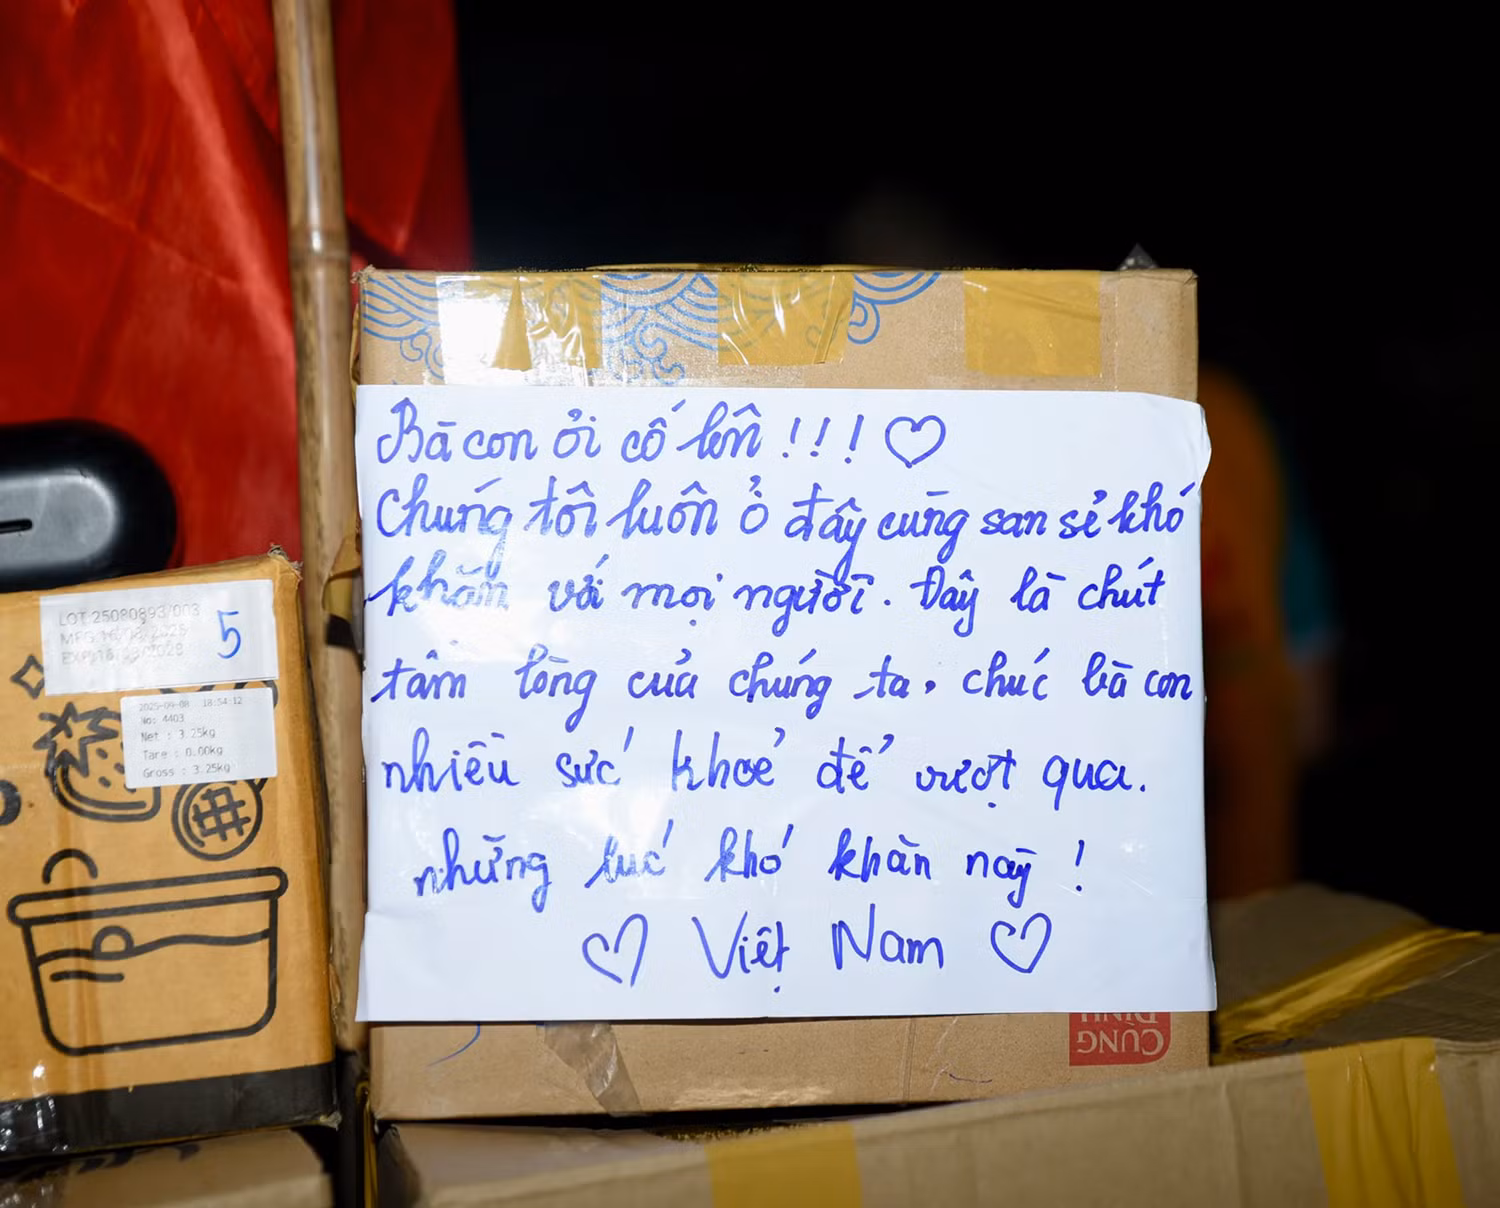 Bà con ơi cố lên !!! ♡
Chúng tôi luôn ở đây cùng san sẻ khó
khăn với mọi người. Đây là chút
tấm lòng của chúng ta. chúc bà con
nhiều sức khoẻ để vượt qua.
những lúc khó khăn này !
♡ Việt Nam ♡
LOT:25080893/003
5
2025-09-08 18:54:12
No: 4403
Net : 3.25kg
Tare : 0.00kg
Gross : 3.25kg
CUNG
ĐÌNH